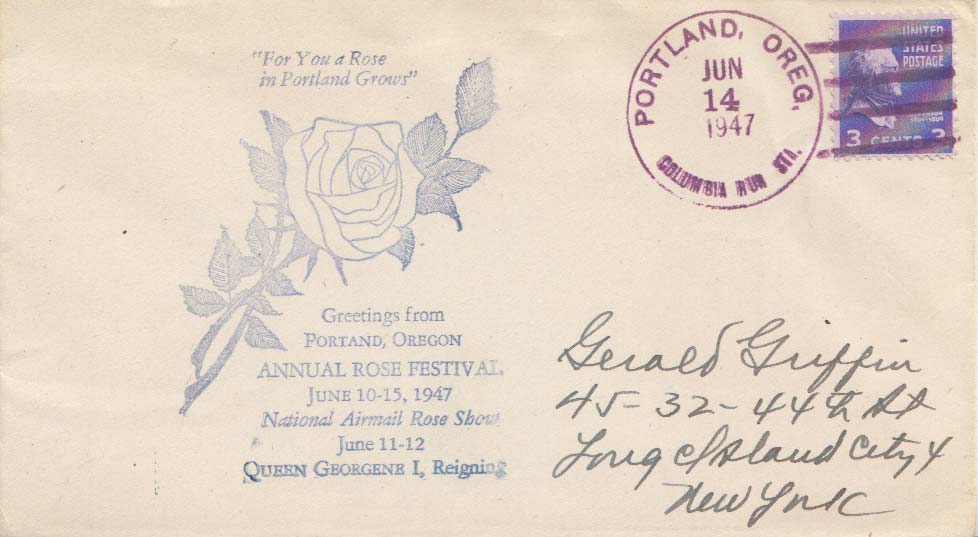 "For You a Rose
in Portland Grows"
Greetings from
PORTAND, OREGON
ANNUAL ROSE FESTIVAL
JUNE 10-15, 1947
National Airmail Rose Show
June 11-12
QUEEN GEORGENE I, Reigning
PORTLAND, OREG.
JUN
14
1947
COLUMBIA RUR STA.
UNITED
STATES
POSTAGE
3 CENTS 3
Gerald Griffin
45-32-44th St
Long Island City 4
New York